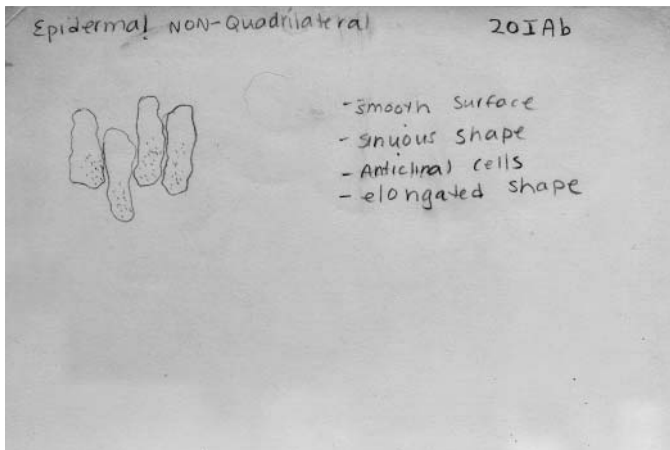 Epidermal NON-Quadrilateral
20IAb
- smooth surface
- sinuous shape
- Anticlinal cells
- elongated shape